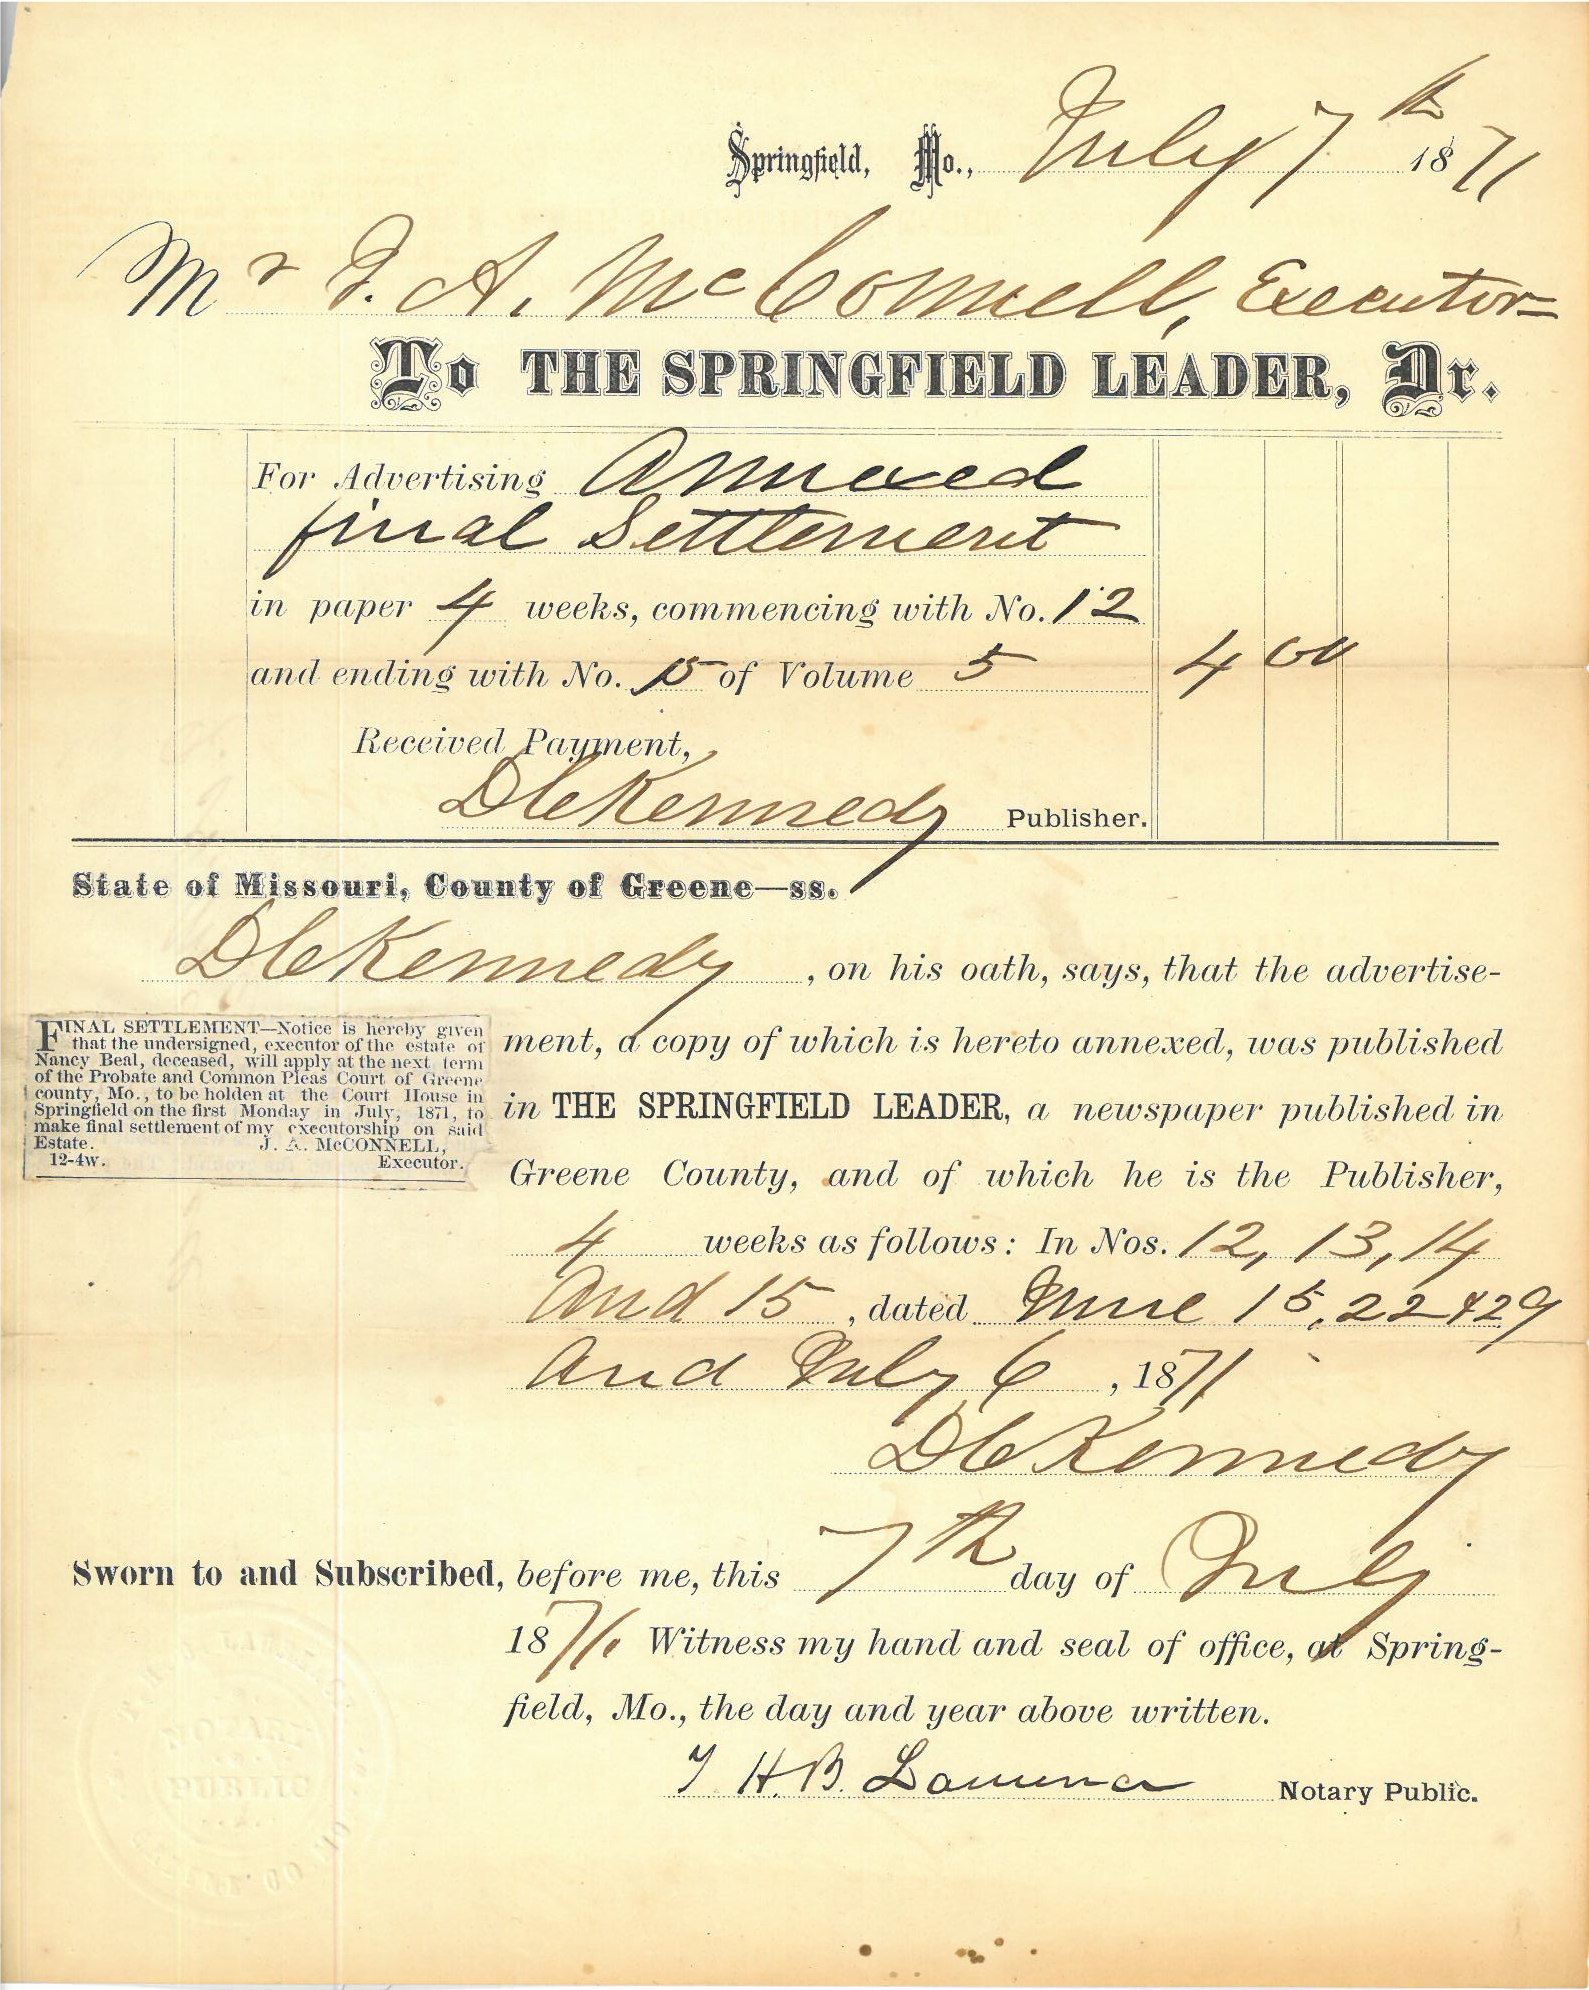 Springfield, Mo., July 7th 1871
Mr J. A. McConnell, Executor
To THE SPRINGFIELD LEADER, Dr.
For Advertising Annexed
final Settlement
in paper 4 weeks, commencing with No. 12
and ending with No. 15 of Volume 5 4 00
Received Payment,
D C Kennedy Publisher.
State of Missouri, County of Greene—ss.
D C Kennedy, on his oath, says, that the advertise-
ment, a copy of which is hereto annexed, was published
in THE SPRINGFIELD LEADER, a newspaper published in
Greene County, and of which he is the Publisher,
4 weeks as follows: In Nos. 12, 13, 14
and 15, dated June 15, 22 & 29
and July 6, 1871
D C Kennedy
FINAL SETTLEMENT—Notice is hereby given
that the undersigned, executor of the estate of
Nancy Beal, deceased, will apply at the next term
of the Probate and Common Pleas Court of Greene
county, Mo., to be holden at the Court House in
Springfield on the first Monday in July, 1871, to
make final settlement of my executorship on said
Estate. J. A. McCONNELL,
12-4w. Executor.
Sworn to and Subscribed, before me, this 7th day of July
1871. Witness my hand and seal of office, at Spring-
field, Mo., the day and year above written.
H. B. Notary Public.
NOTARY
PUBLIC